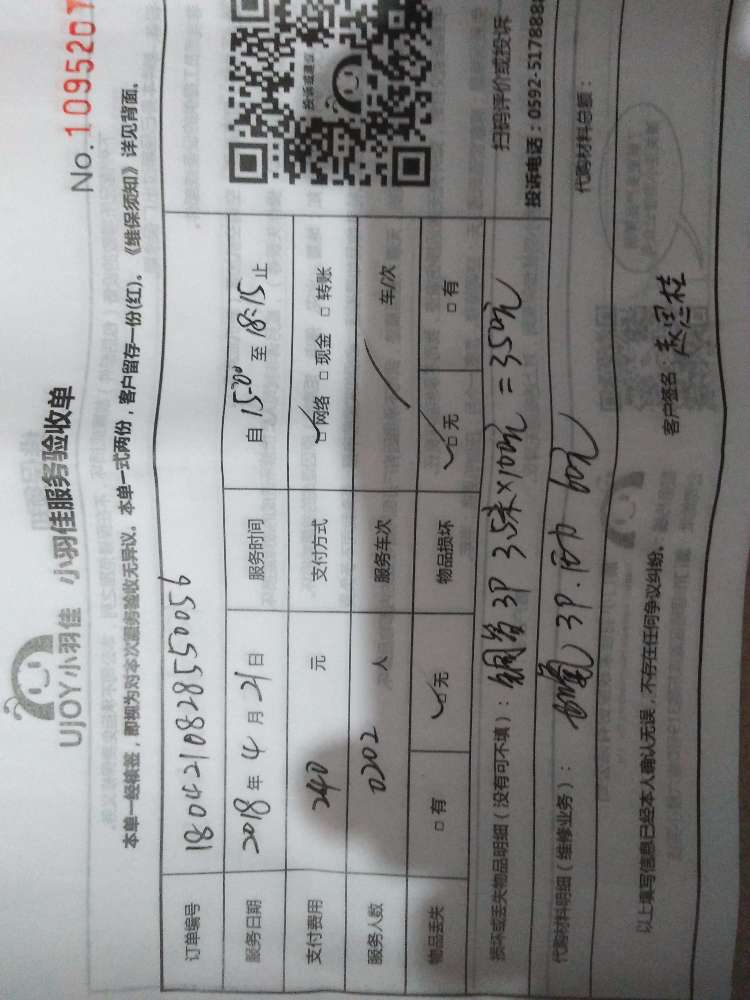 No.1095207
UJOY小羽佳 小羽佳服务验收单
本单一经核签，即视为对本次服务验收无异议。本单一式两份，客户留存一份(红)。《维保须知》详见背面。
订单编号 18042108285550056
服务日期 2018年4月21日 服务时间 自15:00至18:15止
支付费用 240 元 支付方式 ☑网络 □现金 □转账
服务人数 0202 人 服务车次 / 车/次
物品丢失 □有 ☑无 物品损坏 ☑无 □有
损坏或丢失物品明细（没有可不填）：铜管3P 3.5米×100元=350元
代购材料明细（维修业务）：加氟3P. 60元
代购材料总额：
投诉或建议
扫码评价或投诉
投诉电话：0592-517888
以上填写信息已经本人确认无误，不存在任何争议纠纷。
客户签名：赵思桂